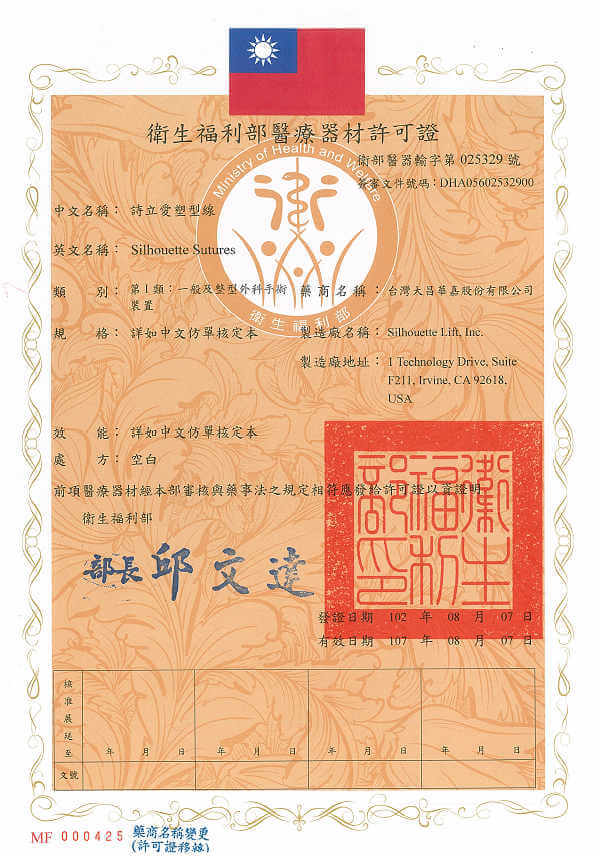 衛生福利部醫療器材許可證
衛部醫器輸字第 025329 號
簽審文件號碼：DHA05602532900
Ministry of Health and Welfare
衛生福利部
中文名稱： 詩立愛塑型線
英文名稱： Silhouette Sutures
類 別： 第I類：一般及整型外科手術裝置
藥商名稱： 台灣大昌華嘉股份有限公司
規 格： 詳如中文仿單核定本
製造廠名稱： Silhouette Lift, Inc.
製造廠地址： 1 Technology Drive, Suite
F211, Irvine, CA 92618,
USA
效 能： 詳如中文仿單核定本
處 方： 空白
前項醫療器材經本部審核與藥事法之規定相符應發給許可證以資證明
衛生福利部
部長 邱文達
衛生福利部印
發證日期 102 年 08 月 07 日
有效日期 107 年 08 月 07 日
核准展延至
年 月 日 年 月 日 年 月 日 年 月 日
文號
MF 000425 藥商名稱變更
(許可證移轉)